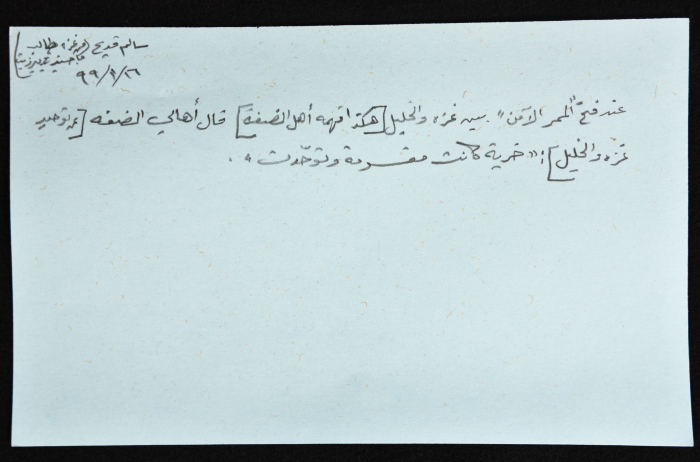 سالم قديح (من غزة، طالب
في جامعة بيرزيت)
٩٩/٩/٢٦
عند فتح "الممر الآمن" بين غزه والخليل [هكذا فهمه أهل الضفة] قال أهالي الضفه [عن توحيد
غزه والخليل]: "خرية كانت مقسومة وتوحّدت".